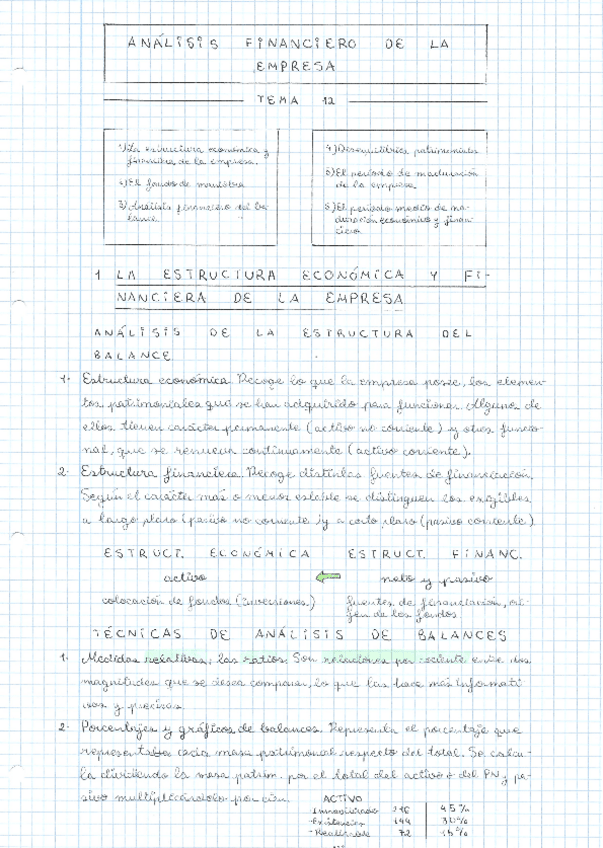 ANÁLISIS FINANCIERO DE LA
EMPRESA
TEMA 12
1) La estructura económica y
financiera de la empresa.
2) El fondo de maniobra
3) Análisis financiero del ba-
lance.
4) Desequilibrios patrimoniales
5) El período de maduración
de la empresa.
6) El período medio de ma-
duración económico y finan-
ciero
1 LA ESTRUCTURA ECONÓMICA Y FI-
NANCIERA DE LA EMPRESA
ANÁLISIS DE LA ESTRUCTURA DEL
BALANCE
1- Estructura económica. Recoge lo que la empresa posee, los elemen-
tos patrimoniales que se han adquirido para funcionar. Algunos de
ellos tienen carácter permanente (activo no corriente) y otros funcio-
nal, que se renueva continuamente (activo corriente).
2- Estructura financiera. Recoge distintas fuentes de financiación.
Según el carácter más o menos estable se distinguen los exigibles
a largo plazo (pasivo no corriente) y a corto plazo (pasivo corriente)
ESTRUCT. ECONÓMICA ESTRUCT. FINANC.
activo neto y pasivo
colocación de fondos (inversiones) fuentes de financiación, ori-
gen de los fondos
TÉCNICAS DE ANÁLISIS DE BALANCES
1. Medidas relativas: las ratios. Son relaciones por cociente entre dos
magnitudes que se desea comparar, lo que las hace más informati
vas y precisas.
2- Porcentajes y gráficos de balances. Representa el porcentaje que
representaba cada masa patrimonial respecto del total. Se calcu-
la dividiendo la masa patrim. por el total del activo o del PN y pa-
sivo multiplicándolo por cien.
ACTIVO
-Inmovilizado 216 45%
-Existencias 144 30%
-Realizable 72 15%